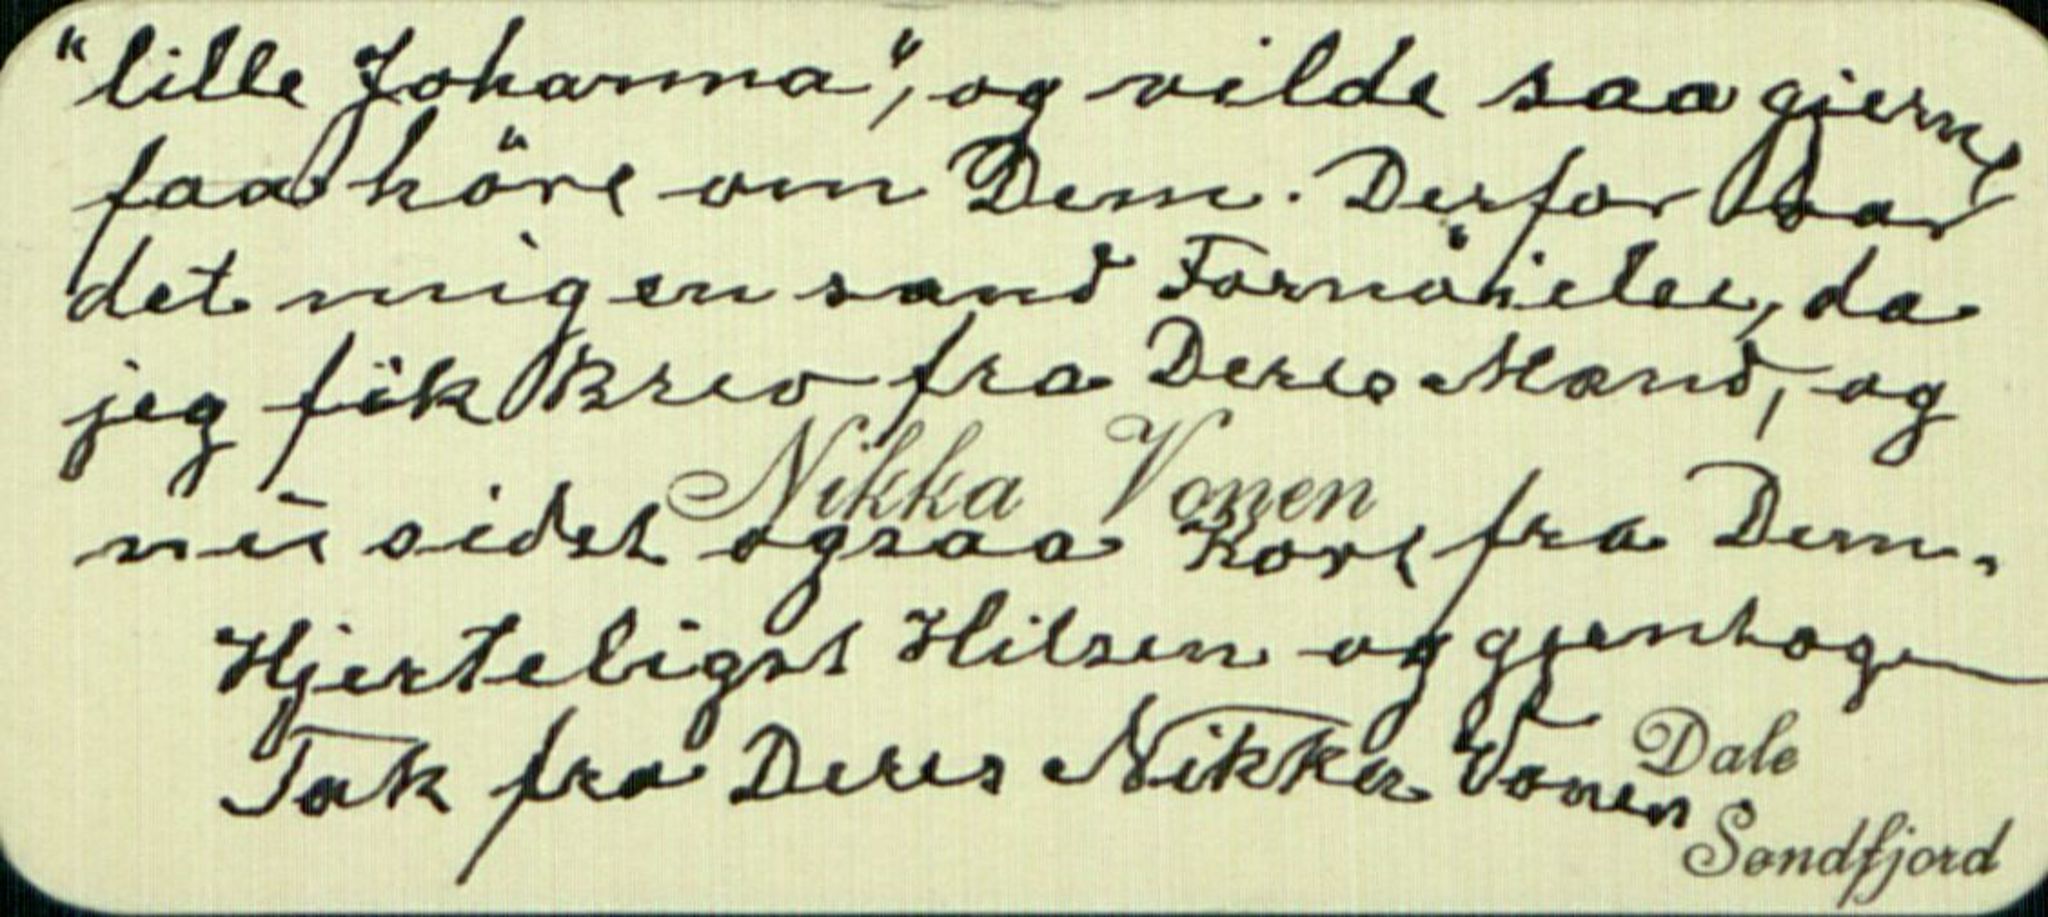 "lille Johanna", og vilde saa gjerne
faa höre om Dem. Derfor var
det mig en sand Fornöielse, da
jeg fik Brev fra Deres Mand, og
Nikka Vonen
nu sidst ogsaa Kort fra Dem.
Hjerteligst Hilsen og gjentagen
Tak fra Deres Nikka Vonen
Dale
Søndfjord